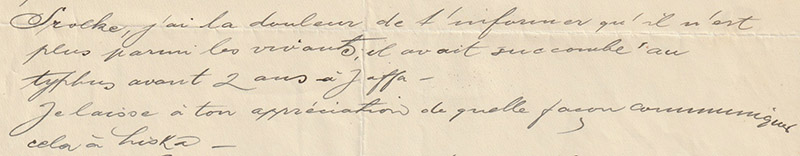 Srolke, j'ai la douleur de t'informer qu'il n'est
plus parmi les vivants, il avait succombé au
typhus avant 2 ans à Jaffa -
Je laisse à ton appréciation de quelle façon communiquer
cela à Liska -